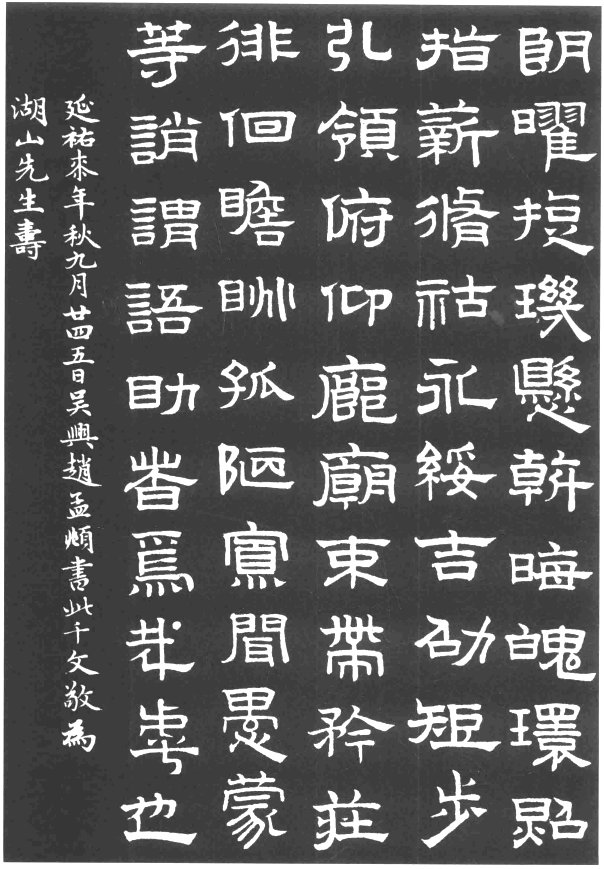 朗曜旋璣懸斡晦魄環照
指薪脩祜永綏吉劭矩步
引領俯仰廊廟束帶矜莊
徘徊瞻眺孤陋寡聞愚蒙
等誚謂語助者焉哉虖也
延祐來年秋九月廿四五日吳興趙孟頫書此千文敬為
湖山先生壽